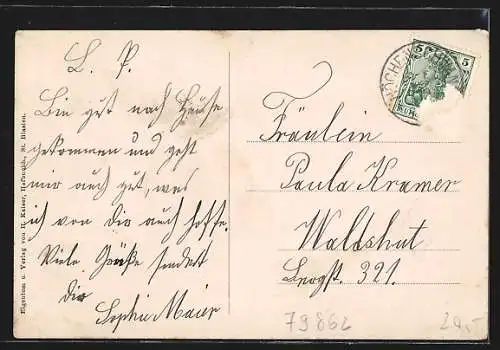 L. P.
Bin gut nach Hause
gekommen und geht
mir auch gut, was
ich von dir auch hoffe.
Viele Grüße sendet
dir
Sophie Maier
Fräulein
Paula Kramer
Waldshut
Bergst. 321.
79862
Eigentum u. Verlag von H. Kaiser, Hofphotogr., St. Blasien.
5 5